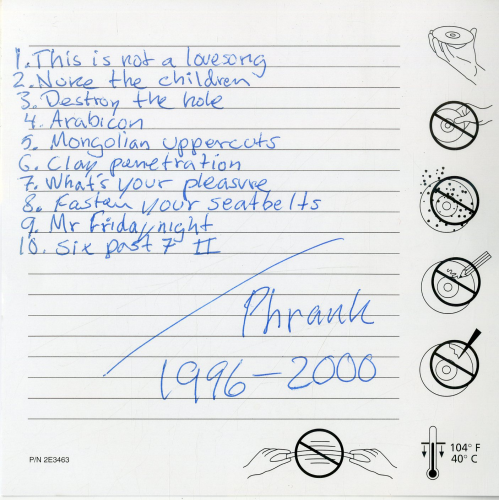 1. This is not a lovesong
2. Nuke the children
3. Destroy the hole
4. Arabicon
5. Mongolian uppercuts
6. Clap penetration
7. What's your pleasure
8. Fasten your seatbelts
9. Mr Friday night
10. Six past 7 II
Phrank
1996-2000
P/N 2E3463
104° F
40° C